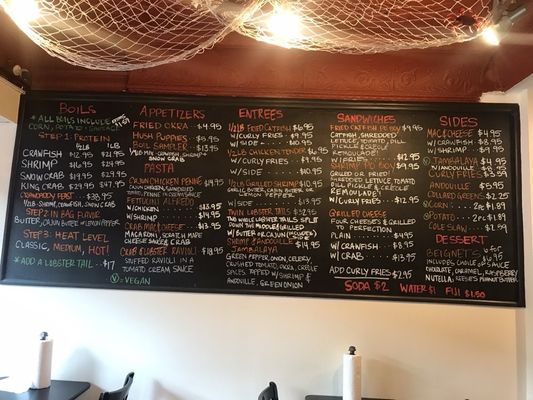 BOILS
+ ALL BOILS INCLUDE
CORN, POTATO + SAUSAGE
STEP 1: PROTEIN
1/2LB 1LB
CRAWFISH $12.95 $21.95
SHRIMP $16.95 $29.95
SNOW CRAB $19.95
KING CRAB $29.95 $47.95
CAJUN FEAST $38.95
STEP 2: IN BAG FLAVOR
BUTTER, CAJUN BUTTER OR LEMON PEPPER
STEP 3: HEAT LEVEL
CLASSIC, MEDIUM, HOT!
* ADD A LOBSTER TAIL $17
APPETIZERS
FRIED OKRA $4.95
HUSH PUPPIES $5.95
BOIL SAMPLER $13.95
SNOW CRAB
PASTA
CAJUN CHICKEN PENNE $14.95
FETTUCINI ALFREDO
W/CHICKEN $13.95
W/SHRIMP $14.95
CRAB MAC & CHEESE
MACARONI, CREAMY HOME MADE
CHEESE SAUCE & CRAB
CRAB & LOBSTER RAVIOLI $18.95
STUFFED RAVIOLI IN A
TOMATO CREAM SAUCE
V = VEGAN
ENTREES
1/2LB FRIED CATFISH $6.95
W/CURLY FRIES $9.95
W/SIDE $10.95
1/2LB CHICKEN TENDER $6.95
W/CURLY FRIES $9.95
W/SIDE $10.95
1/2LB GRILLED SHRIMP $10.95
W/SIDE $13.95
TWIN LOBSTER TAILS $32.95
TWO WHOLE LOBSTER TAILS SPLIT
DOWN THE MIDDLE & GRILLED
SHRIMP & ANDOUILLE $14.95
JAMBALAYA
GREEN PEPPER, ONION, CELERY,
CRUSHED TOMATO, OKRA, CREOLE
SPICES, TOPPED W/SHRIMP &
ANDOUILLE, GREEN ONION
SANDWICHES
FRIED CATFISH PO BOY $9.95
CATFISH, SHREDDED
LETTUCE, TOMATO, DILL
PICKLE & CREOLE
REMOULADE
W/FRIES $12.95
SHRIMP PO BOY $9.95
GRILLED OR FRIED!
SHREDDED LETTUCE TOMATO
DILL PICKLE & CREOLE
REMOULADE!
W/FRIES $12.95
GRILLED CHEESE
FOUR CHEESES & GRILLED
TO PERFECTION
PLAIN $4.95
W/CRAWFISH $8.95
W/CRAB $13.95
ADD CURLY FRIES $2.95
SODA $2 WATER $1 FIJI $1.50
SIDES
MAC & CHEESE $4.95
W/CRAWFISH $8.95
W/SHRIMP $8.95
V JAMBALAYA $4.95
W/ANDOUILLE $4.95
CURLY FRIES $3.59
ANDOUILLE $5.95
COLLARD GREENS $2.95
CORN 2PC $1.89
POTATO 2PC $1.89
COLE SLAW $2.59
DESSERT
BEIGNETS
INCLUDES CHOICE OF SAUCE
CHOCOLATE, CARAMEL, RASPBERRY
NUTELLA, REESE'S PEANUT BUTTER